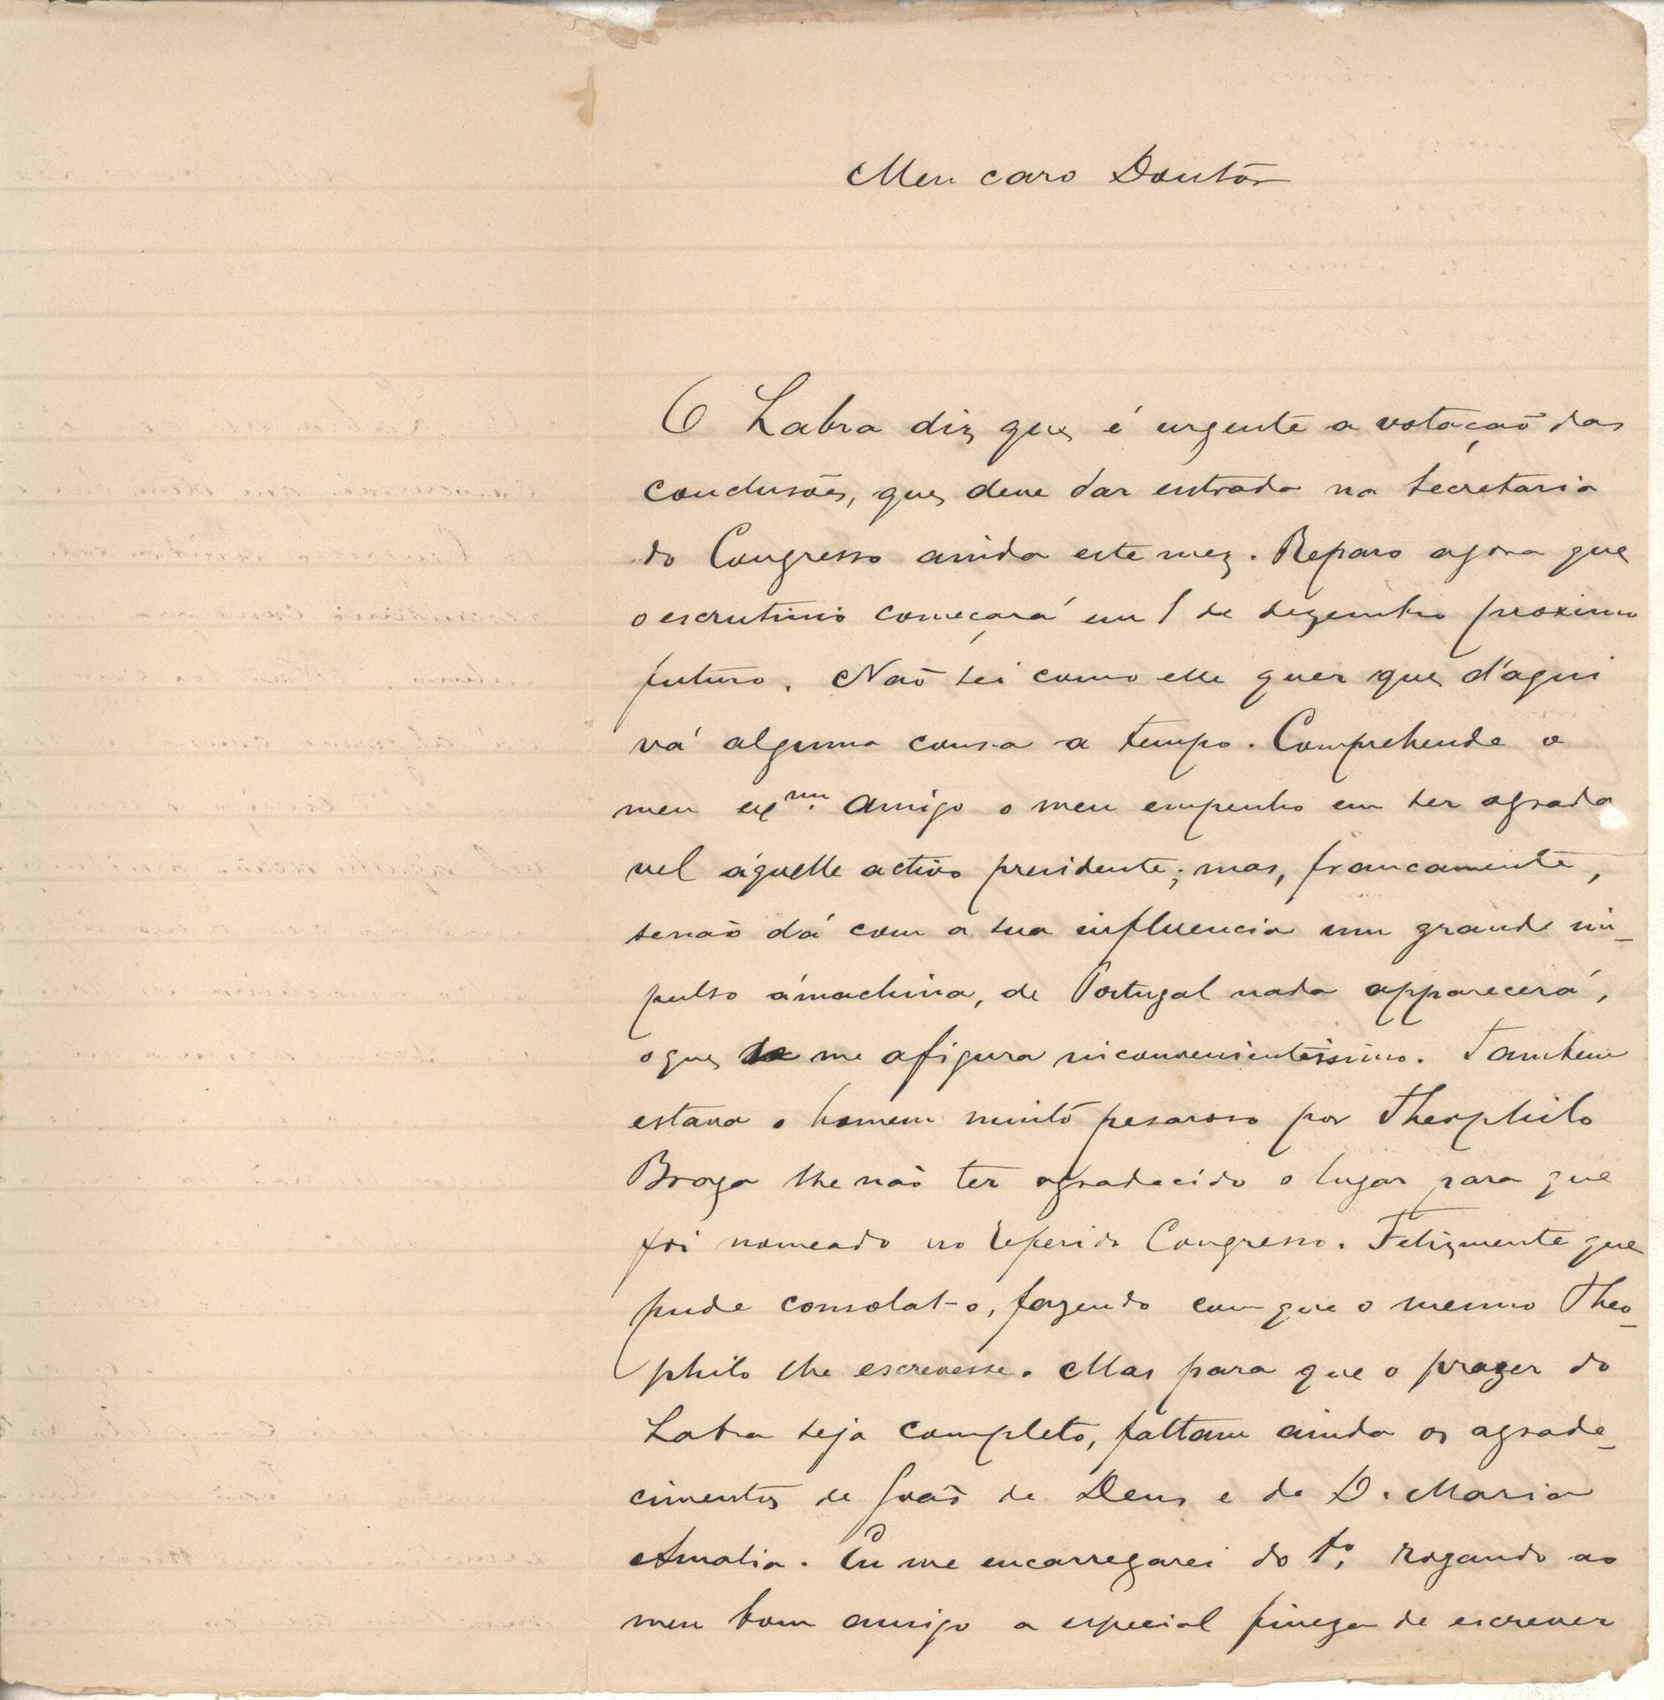 Meu caro Doutôr
O Labra diz que é urgente a votação das
conclusões, que deve dar entrada na secretaria
do Congresso ainda este mez. Reparo agora que
o escrutinio começará em 1 de dezembro proximo
futuro. Não sei como elle quer que d'aqui
vá alguma cousa a tempo. Comprehende o
meu exmo. amigo o meu empenho em ser agrada
vel áquelle activo presidente; mas, francamente,
senão dá com a sua influencia um grande im-
pulso ámachina, de Portugal nada apparecerá,
o que me afigura inconvenientissimo. Tambem
estava o homem muito pesaroso por Theophilo
Braga lhe não ter agradecido o lugar para que
foi nomeado no referido Congresso. Felizmente que
pude consolal-o, fazendo com que o mesmo Theo-
philo lhe escrevesse. Mas para que o prazer do
Labra seja completo, faltam ainda os agrade-
cimentos de João de Deus e de D. Maria
Amalia. Eu me encarregarei do 1º, rogando ao
meu bom amigo a especial fineza de escrever